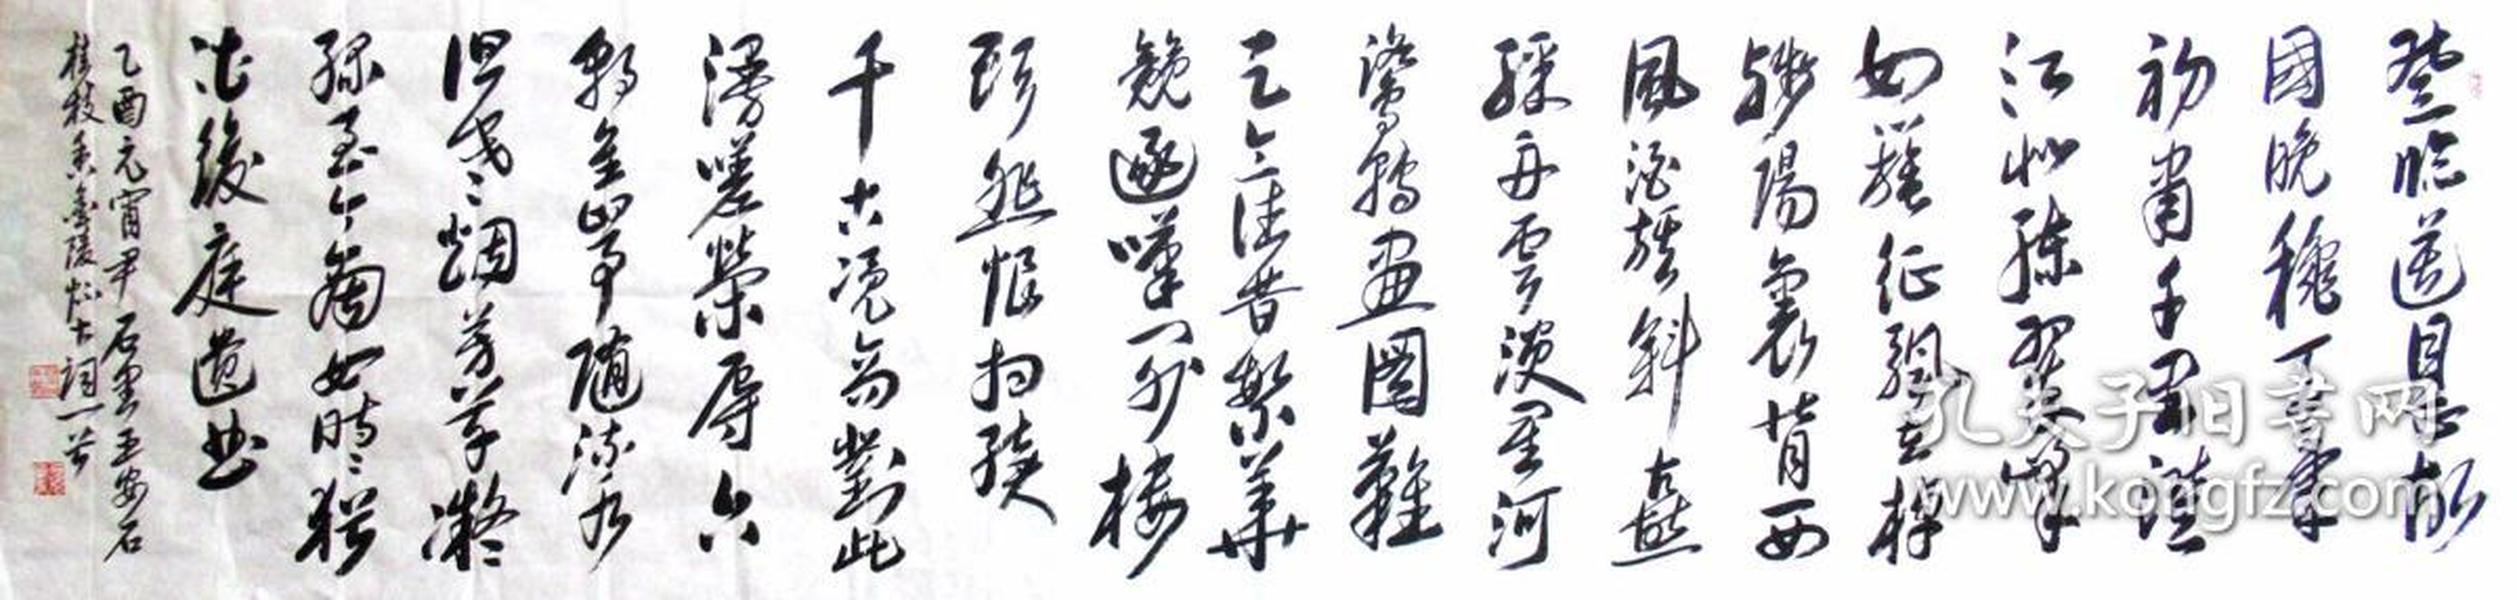 登臨送目正故
國晚穐天氣
初肅千里澄
江似練翠峰
如簇征帆去棹
殘陽裏背西
風酒旗斜矗
綵舟雲淡星河
鷺起畫圖難
足念往昔繁華
競逐嘆門外樓
頭悲恨相續
千古憑高對此
漫嗟榮辱六
朝舊事隨流水
但寒烟芳草凝
綠至今商女時時猶
唱後庭遺曲
乙酉元宵尹石雲王安石
桂枝香金陵懷古詞一首
孔夫子旧书网
www.kongfz.com